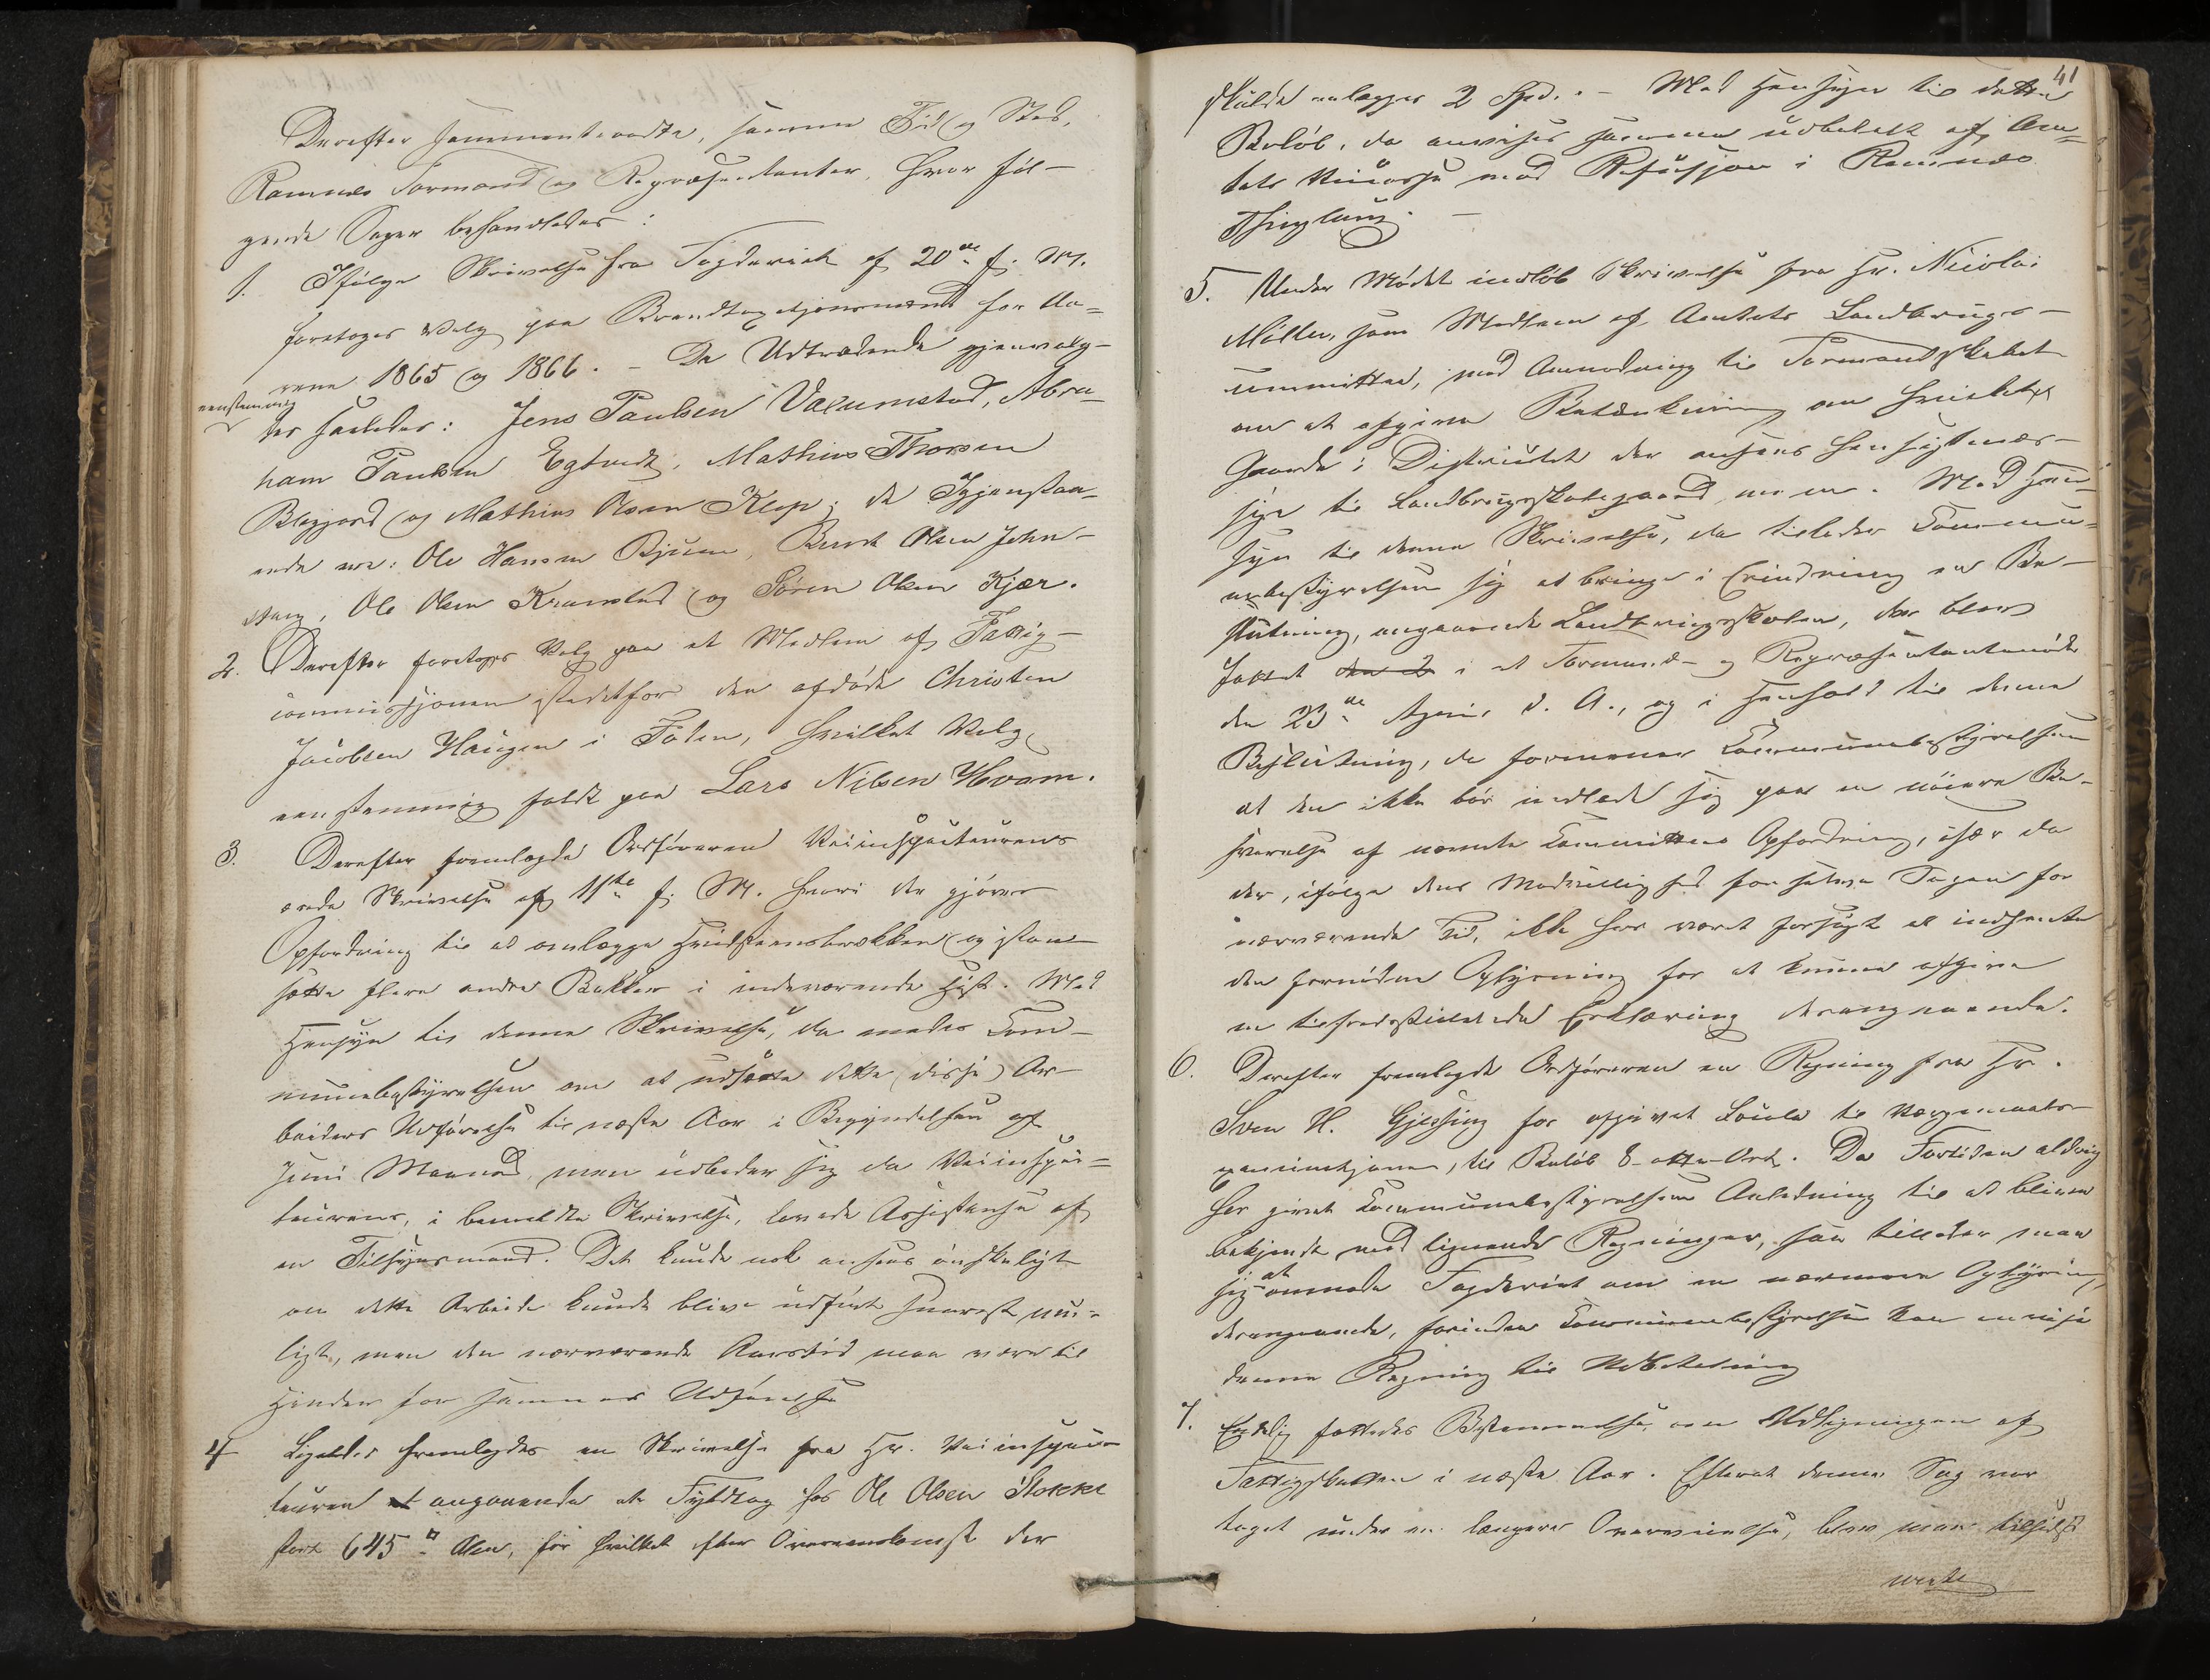 Derefter sammentraadte, samme Tid og Sted,
Ramnæs Formænd og Repræsentanter, hvor føl-
gende Sager behandledes:
1. Ifølge Skrivelse fra Fogderiet af 20de f. M.
foretoges Valg paa Brandtaxationsmænd for Aa-
rene 1865 og 1866. - De Udtrædende gjenvalg-
eenstemmig
tes saaledes: Jens Paulsen Valumstad, Abra-
ham Paulsen Egtvedt, Mathias Thorsen
og Mathias Olsen Klop; de Igjenstaa-
ende ere: Ole Hansen Bjune, Bernt Olsen Jehn-
stang, Ole Olsen Kramstad og Søren Olsen Kjær.
2. Derefter foretoges Valg paa et Medlem af Fattig-
commissjonen istedetfor den afdøde Christen
Jacobsen Haugen i Foden, hvilket Valg
eenstemmig faldt paa Lars Nilsen Hvam.
3. Derefter fremlagde Ordføreren Veiinspecteurens
ærede Skrivelse af 11te f. M. hvori der gjøres
Opfordring til at omlægge Hvidsteensbrækken og istand-
sætte flere andre Bakker i indeværende Høst. Med
Hensyn til denne Skrivelse, da enedes Com-
munebestyrelsen om at udsætte dette (disse) Ar-
beiders Udførelse til næste Aar i Begyndelsen af
Juni Maaned, men udbeder sig da Veiinspec-
teurens, i bemeldte Skrivelse, lovede Assistanse af
en Tilsynsmand. Det kunde nok ansees ønskeligt
om dette Arbeide kunde blive udført snarest mu-
ligt, men den nærværende Aarstid maa være til
Hinder for sammes Udførelse
4 Ligeledes fremlagdes en Skrivelse fra Hr. Veiinspec-
teuren angaaende et Fyldtag hos Ole Olsen Stokke
stort 645 □ Alen, for hvilket efter Overenskomst der
41
skulde erlægges 2 Spd. - Med Hensyn til dette
Beløb, da anvises samme udbetalt af Am-
tets Veicasse mod Refusjon i Ramnæs
Thinglaug. -
5. Under Mødet indløb Skrivelse fra Hr. Nicolai
Møller, som Medlem af Amtets Landbrugs-
committee, med Anmodning til Formandskabet
om at afgive Betænkning om hvilket
Gaarde i Districtet der ansees hensigtmæs-
sige til Landbrugsskolegaard m. m. Med Hen-
syn til denne Skrivelse, da tillader Commu-
nebestyrelsen sig at bringe i Erindring en Be-
slutning, angaaende Landbrugsskolen, der blev
fattet i et Formænd- og Repræsentantmøde
den 23de April d. A., og i Henhold til denne
Beslutning, da formener Communebestyrelsen
at den ikke bør indlade sig paa en nøiere Be-
svarelse af nævnte Committees Opfordring, især da
der, ifølge dens Modvillighed for selve Sagen for
nærværende Tid, ikke har været forsøgt at indhente
den fornødne Oplysning for at kunne afgive
en tilfredsstillende Erklæring desangaaende.
6. Derefter fremlagde Ordføreren en Regning fra Hr.
Sven H. Gjessing for opgivet Locale til Værgemaals-
til Beløb 8 - otte Ort. Da Fortiden aldrig
har givet Communebestyrelsen Anledning til at blive
bekjendt med lignende Regninger, saa tillader man
sig at anmode Fogderiet om en nærmere Oplysning
desangaaende, forinden Communebestyrelsen kan anvise
denne Regning til Udbetaling
7. Endelig fattedes Bestemmelse om Udligningen af
Fattigskatten i næste Aar. Efterat denne Sag var
taget under en længere Overveielse, blev man tilsidst